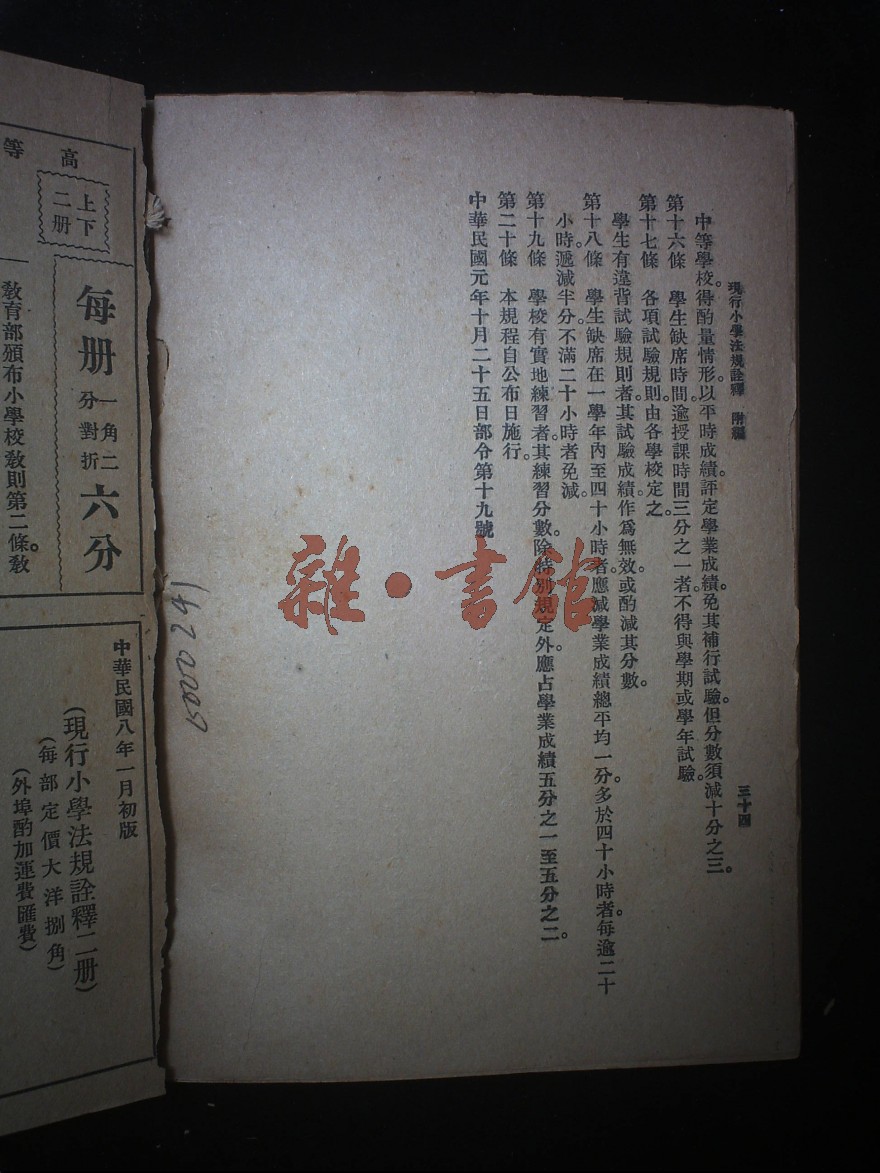 現行小學法規詮釋 附編
三十四
中等學校。得酌量情形。以平時成績。評定學業成績。免其補行試驗。但分數須減十分之三。
第十六條 學生缺席時間。逾授課時間三分之一者。不得與學期或學年試驗。
第十七條 各項試驗規則。由各學校定之。
學生有違背試驗規則者。其試驗成績。作爲無效。或酌減其分數。
第十八條 學生缺席在一學年內至四十小時者。應減學業成績總平均一分。多於四十小時者。每逾二十
小時。遞減半分。不滿二十小時者免減。
第十九條 學校有實地練習者。其練習分數。除特別規定外。應占學業成績五分之一至五分之二。
第二十條 本規程自公布日施行。
中華民國元年十月二十五日部令第十九號
雜·書館
5000241
高等
上下
二册
每册
一角二
分對折
六分
教育部頒布小學校教則第二條。教
中華民國八年一月初版
(現行小學法規詮釋二册)
(每部定價大洋捌角)
(外埠酌加運費匯費)